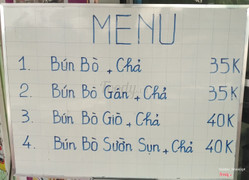 MENU
1. Bún Bò + Chả 35K
2. Bún Bò Gân + Chả 35K
3. Bún Bò Giò + Chả 40K
4. Bún Bò Sườn Sụn + Chả 40K